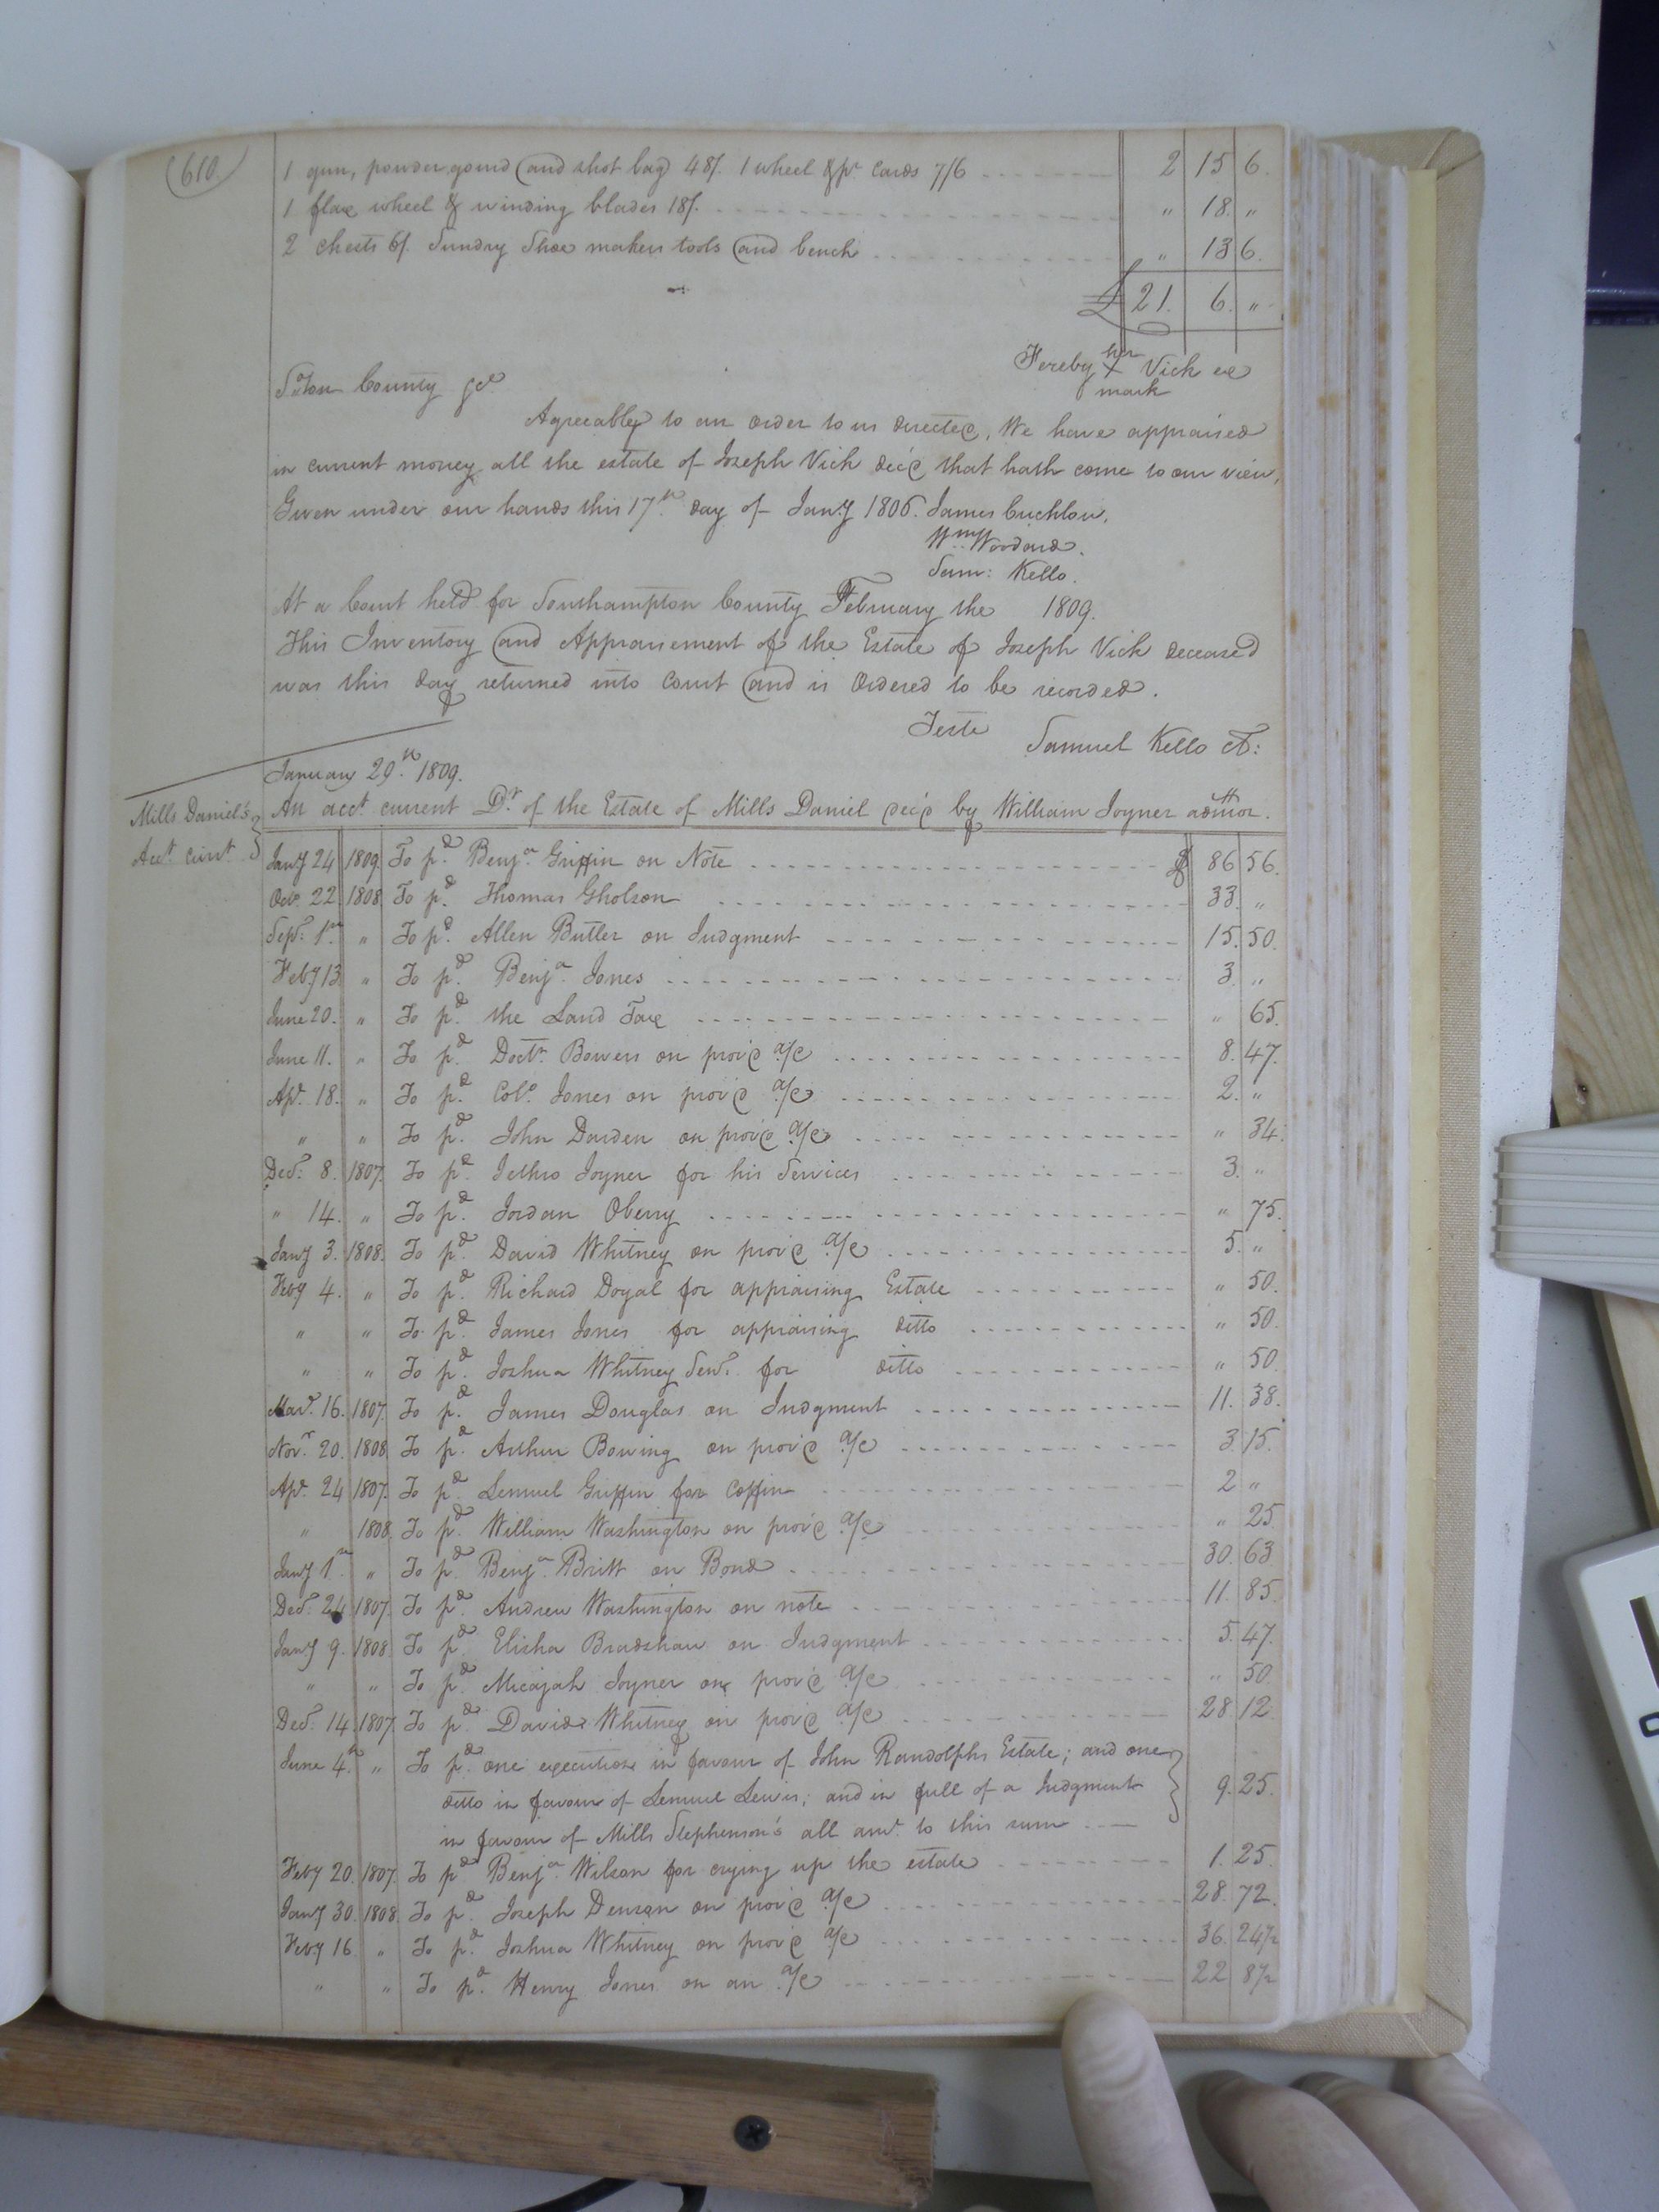 610
1 gun, powder gourd and shot bag 48/. 1 wheel & pr. cards 7/6 2 15 6.
1 flax wheel & winding blades 18/. " 18. "
2 chests 6/. Sundry Shoe makers tools and bench " 13 6.
£ 21. 6. "
Fereby her X mark Vick exe
S°ton County Sct
Agreeably to an order to us directed, We have appraised
in current money all the estate of Joseph Vick dec'd that hath come to our view,
Given under our hands this 17th day of Jany 1806. James Cuchlow,
Wm Woodard.
Sam: Kello.
At a Court held for Southampton County February the 1809.
This Inventory and Appraisement of the Estate of Joseph Vick deceased
was this day returned into Court and is Ordered to be recorded.
Teste Samuel Kello Ct:
January 29th 1809.
Mills Daniel's Acct. curt. } An acct. current Dr. of the Estate of Mills Daniel dec'd by William Joyner admor.
Jany 24 1809. To pd. Benja. Griffin on Note $ 86 56.
Octo. 22 1808 To pd. Thomas Gholson 33. "
Sepr. 1st. " To pd. Allen Butler on Judgment 15. 50.
Feby 13 " To pd. Benja. Jones 3. "
June 20. " To pd. the Land Tax " 65.
June 11. " To pd. Doctr. Bowers on prov'd a/c 8. 47.
Apl. 18. " To pd. Colo. Jones on prov'd a/c 2. "
" " To pd. John Darden on prov'd a/c " 34.
Decr. 8. 1807. To pd. Jethro Joyner for his Services 3. "
" 14. " To pd. Jordan Oberry " 75.
Jany 3. 1808. To pd. David Whitney on prov'd a/c 5. "
Feby 4. " To pd. Richard Doyal for appraising Estate " 50.
" " To pd. James Jones for appraising ditto " 50.
" " To pd. Joshua Whitney Senr. for ditto " 50.
Mar. 16. 1807. To pd. James Douglas on Judgment 11. 38.
Novr. 20. 1808 To pd. Arthur Bowing on prov'd a/c 3. 15.
Apl. 24 1807. To pd. Lemuel Griffin for Coffin 2 "
" 1808 To pd. William Washington on prov'd a/c " 25
Jany 1st. " To pd. Benja. Britt on Bond 30. 63
Decr. 24 1807. To pd. Andrew Washington on note 11. 85.
Jany 9. 1808. To pd. Elisha Bradshaw on Judgment 5. 47.
" " To pd. Micajah Joyner on prov'd a/c " 50
Decr. 14. 1807. To pd. David Whitney on prov'd a/c 28. 12
June 4th. " To pd. one execution in favour of John Randolphs Estate; and one
ditto in favour of Lemuel Lewis; and in full of a Judgment } 9. 25.
in favour of Mills Stephenson's all amt. to this sum
Feby 20. 1807. To pd. Benja. Wilson for crying up the estate 1. 25.
Jany 30. 1808. To pd. Joseph Denson on prov'd a/c 28. 72.
Feby 16. " To pd. Joshua Whitney on prov'd a/c 36. 24½
" " To pd. Henry Jones on an a/c 22 8½